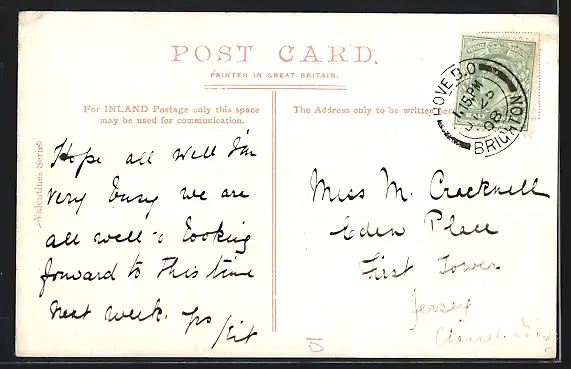 POST CARD.
PRINTED IN GREAT BRITAIN.
For INLAND Postage only this space
may be used for communication.
The Address only to be written here
Valentines Series
HOVE B.O
BRIGHTON
08
Hope all well I'm
very busy we are
all well & looking
forward to this time
next week. yrs
Kit
Miss M. Cracknell
Eden Place
First Tower
Jersey
Channel